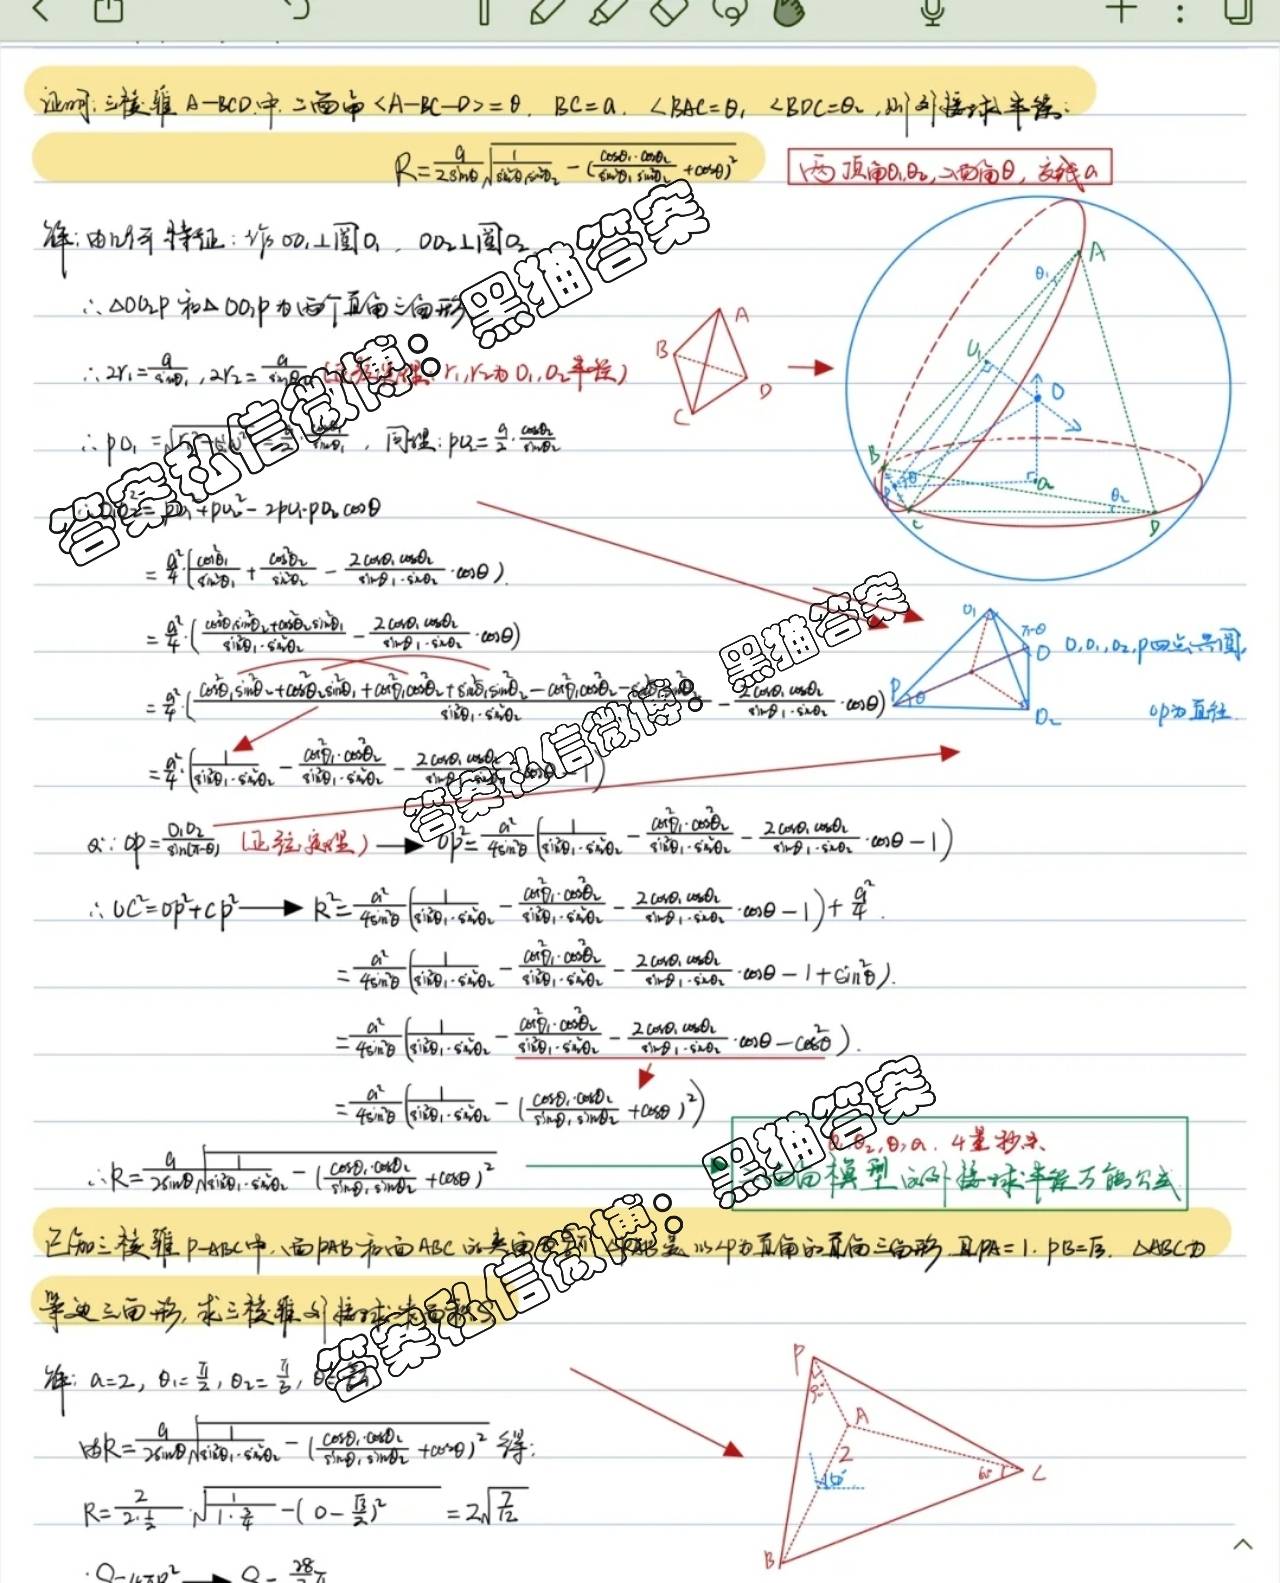 证明：三棱锥 A-BCD中，二面角<A-BC-D>=θ， BC=a， ∠BAC=θ₁ ∠BDC=θ₂，则外接球半径：
R=a/(2sinθ)√(1/(sin²θ₁sin²θ₂)-(cosθ₁·cosθ₂/(sinθ₁sinθ₂)+cosθ)²)
两顶角θ₁θ₂，二面角θ，交线a
解：由几何特征：作OO₁⊥圆O₁，OO₂⊥圆O₂
∴△OO₂P和△OO₁P为两个直角三角形
∴2r₁=a/sinθ₁，2r₂=a/sinθ₂ r₁，r₂为O₁，O₂半径）
A
B
D
C
A
θ₁
O₁
O
B
P
θ
C
O₂
θ₂
D
∴PO₁= a/2·cosθ₁/sinθ₁，同理：PO₂=a/2·cosθ₂/sinθ₂
O₁O₂²=PO₁²+PO₂²-2PO₁·PO₂cosθ
=a²/4·(cos²θ₁/sin²θ₁+cos²θ₂/sin²θ₂-2cosθ₁cosθ₂/(sinθ₁·sinθ₂)·cosθ).
=a²/4·((cos²θ₁sin²θ₂+cos²θ₂sin²θ₁)/(sin²θ₁·sin²θ₂)-2cosθ₁cosθ₂/(sinθ₁·sinθ₂)·cosθ)
=a²/4·((cos²θ₁sin²θ₂+cos²θ₂sin²θ₁+cos²θ₁cos²θ₂+sin²θ₁sin²θ₂-cos²θ₁cos²θ₂-sin²θ₁sin²θ₂)/(sin²θ₁·sin²θ₂)-2cosθ₁cosθ₂/(sinθ₁·sinθ₂)·cosθ)
O₁
π-θ
O
P
θ
O₂
O，O₁，O₂，P四点共圆，
OP为直径.
=a²/4·(1/(sin²θ₁·sin²θ₂)-cos²θ₁·cos²θ₂/(sin²θ₁·sin²θ₂)-2cosθ₁cosθ₂/(sinθ₁·sinθ₂)·cosθ-1)
又∵OP=O₁O₂/sin(π-θ) （正弦定理）→OP²=a²/(4sin²θ)(1/(sin²θ₁·sin²θ₂)-cos²θ₁·cos²θ₂/(sin²θ₁·sin²θ₂)-2cosθ₁cosθ₂/(sinθ₁·sinθ₂)·cosθ-1)
∴OC²=OP²+CP²→R²=a²/(4sin²θ)(1/(sin²θ₁·sin²θ₂)-cos²θ₁·cos²θ₂/(sin²θ₁·sin²θ₂)-2cosθ₁cosθ₂/(sinθ₁·sinθ₂)·cosθ-1)+a²/4.
=a²/(4sin²θ)(1/(sin²θ₁·sin²θ₂)-cos²θ₁·cos²θ₂/(sin²θ₁·sin²θ₂)-2cosθ₁cosθ₂/(sinθ₁·sinθ₂)·cosθ-1+sin²θ).
=a²/(4sin²θ)(1/(sin²θ₁·sin²θ₂)-cos²θ₁·cos²θ₂/(sin²θ₁·sin²θ₂)-2cosθ₁cosθ₂/(sinθ₁·sinθ₂)·cosθ-cos²θ).
=a²/(4sin²θ)(1/(sin²θ₁·sin²θ₂)-(cosθ₁·cosθ₂/(sinθ₁sinθ₂)+cosθ)²)
∴R=a/(2sinθ)√(1/(sin²θ₁·sin²θ₂)-(cosθ₁·cosθ₂/(sinθ₁sinθ₂)+cosθ)²)
θ₂，θ，a，4量秒杀
面模型的外接球半径万能公式
已知三棱锥P-ABC中，面PAB和面ABC的夹角 是以∠P为直角的直角三角形 且PA=1，PB=√3，△ABC为
等边三角形，求三棱锥外接球表面积S
解：a=2，θ₁=π/2，θ₂=π/3，
由R=a/(2sinθ)√(1/(sin²θ₁·sin²θ₂)-(cosθ₁·cosθ₂/(sinθ₁sinθ₂)+cosθ)²) 得：
R=2/(2·1/2)·√(1/(1·3/4)-(0-√3/2)²)=2√(7/12)
P
90°
A
2
60°
C
B
150°
答案私信微博：黑猫答案
答案私信微博：黑猫答案
答案私信微博：黑猫答案